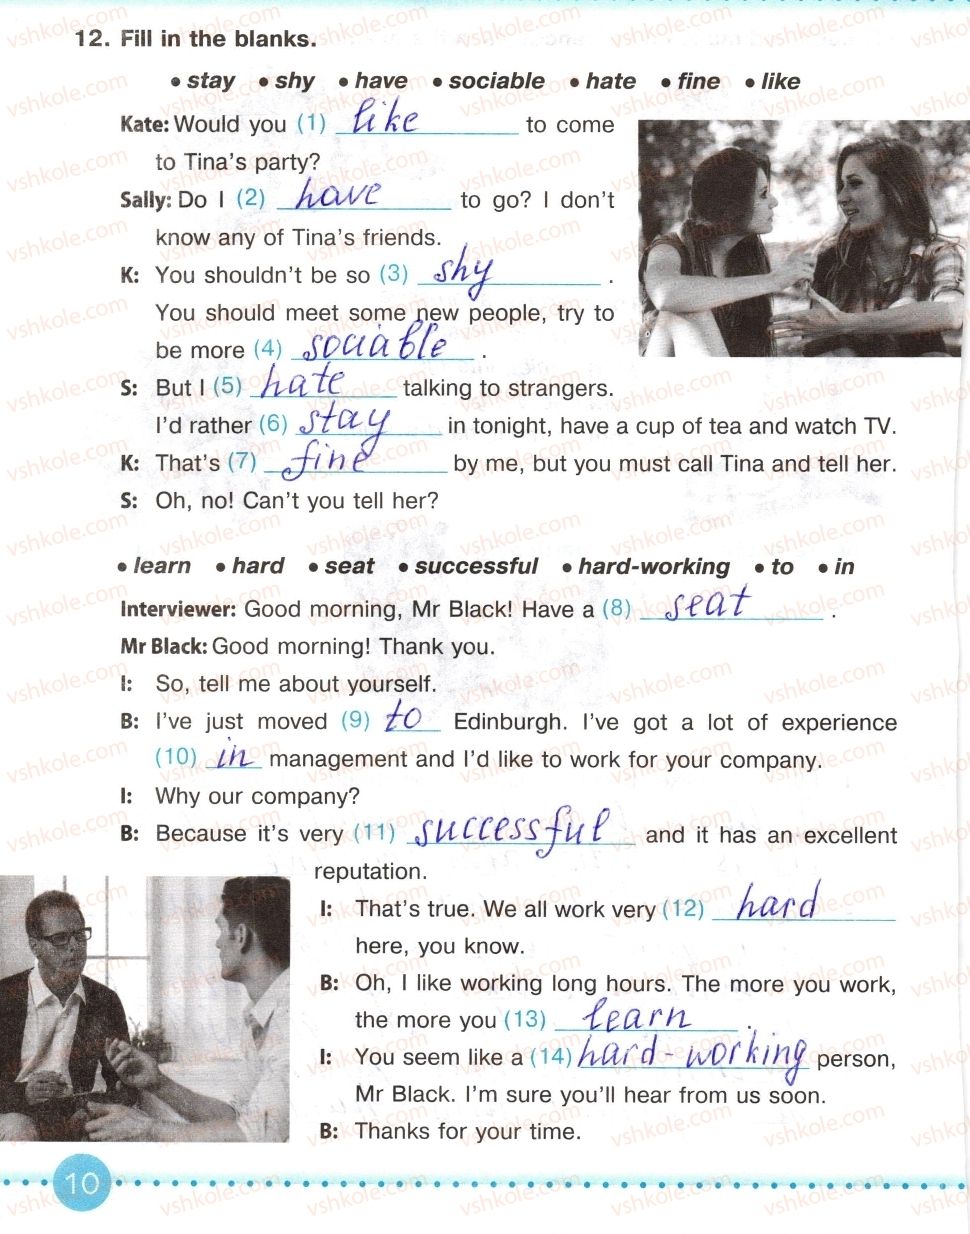 12. Fill in the blanks.
• stay • shy • have • sociable • hate • fine • like
Kate: Would you (1) like to come
to Tina's party?
Sally: Do I (2) have to go? I don't
know any of Tina's friends.
K: You shouldn't be so (3) shy .
You should meet some new people, try to
be more (4) sociable .
S: But I (5) hate talking to strangers.
I'd rather (6) stay in tonight, have a cup of tea and watch TV.
K: That's (7) fine by me, but you must call Tina and tell her.
S: Oh, no! Can't you tell her?
• learn • hard • seat • successful • hard-working • to • in
Interviewer: Good morning, Mr Black! Have a (8) seat .
Mr Black: Good morning! Thank you.
I: So, tell me about yourself.
B: I've just moved (9) to Edinburgh. I've got a lot of experience
(10) in management and I'd like to work for your company.
I: Why our company?
B: Because it's very (11) successful and it has an excellent
reputation.
I: That's true. We all work very (12) hard
here, you know.
B: Oh, I like working long hours. The more you work,
the more you (13) learn .
I: You seem like a (14) hard-working person,
Mr Black. I'm sure you'll hear from us soon.
B: Thanks for your time.
10
vshkole.com